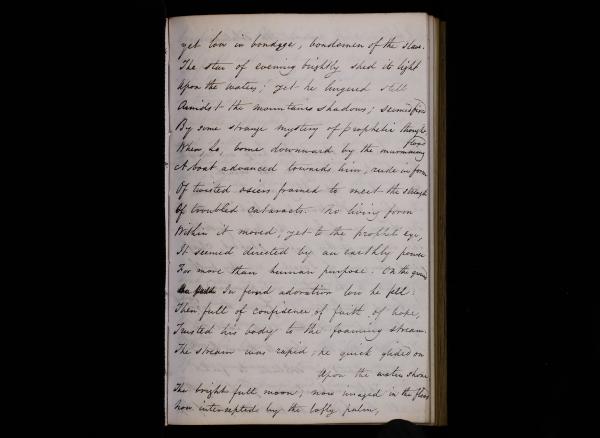 yet low in bondage, bondsmen of the slave.
The star of evening brightly shed its light
Upon the waters; yet he lingered still
Amidst the mountains shadows; seemed
By some strange mystery of prophetic thought
When, lo, borne downward by the murmuring flood
A boat advanced towards him, rude in form
Of twisted osiers framed to meet the strength
Of troubled cataracts. No living form
Within it moved; yet to the prophet eye,
It seemed directed by an earthly power
For more than human purpose. On the
In fervid adoration low he fell:
Then full of confidence, of faith of hope,
Trusted his body to the foaming stream.
The stream was rapid; he quick glided on
Upon the waters shone
The bright full moon; now imaged in the flood
Now intercepted by the lofty palm,